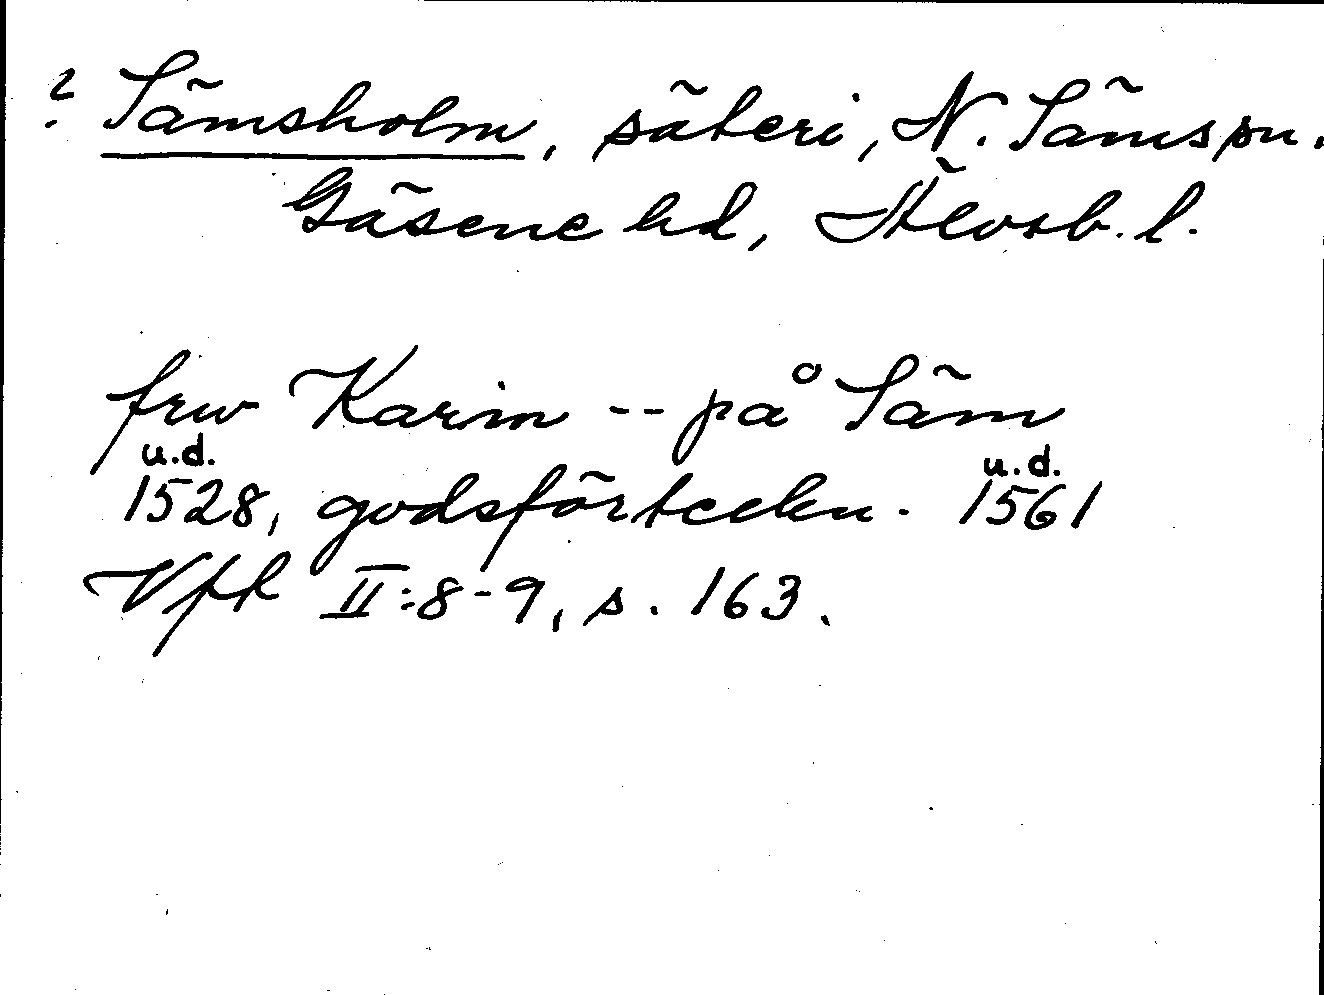 ? Sämsholm, säteri, N. Säms sn.
Gäsene hd, Älvsb. l.
frw Karin -- på Säm
u.d. u.d.
1528, godsförteckn. 1561
Vfk II:8-9, s. 163.